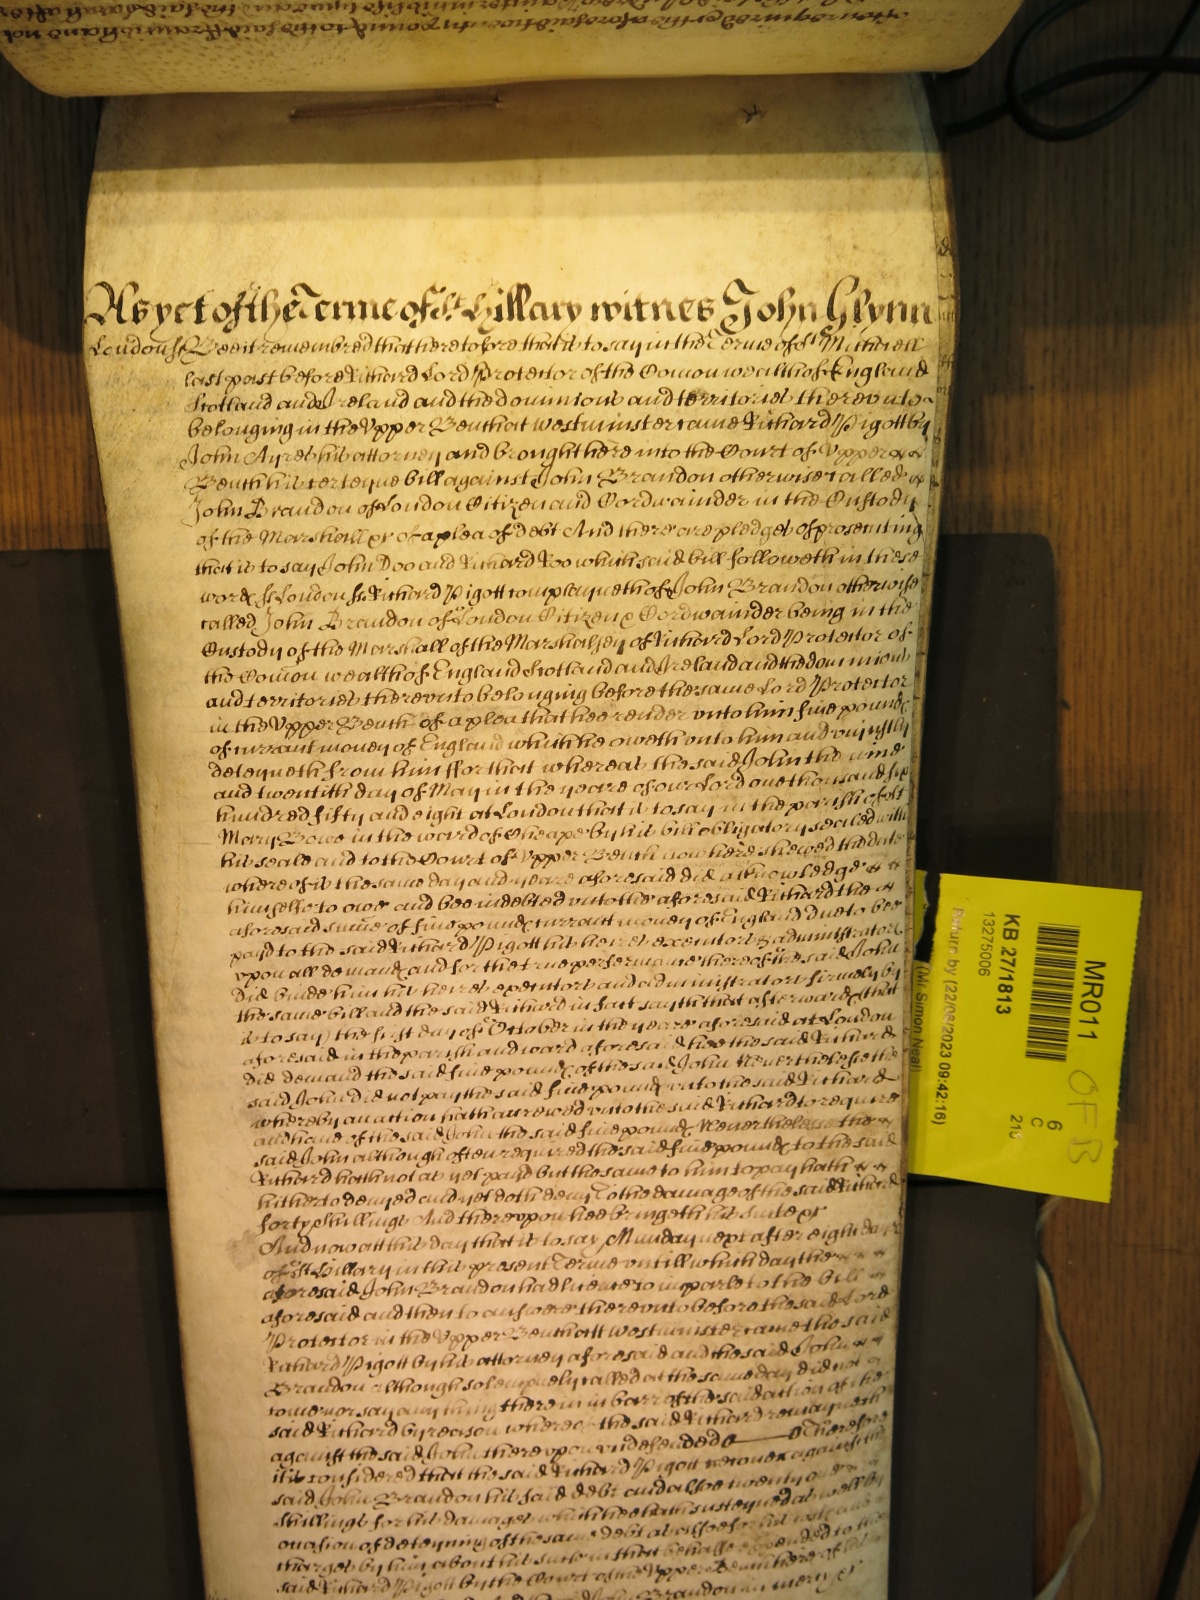 As yet of the Terme of St Hillary witnes John Glynn
London ss Bee it remembred that heretofore that is to say in the Terme of St Michaell
last past before Richard Lord Protector of the Comon wealth of England
Scotland and Ireland and the dominions and territories therevnto
belonging in the Vpper Bench at Westminster came Richard Pigott by
John Ayres his attorney and brought here into the Court of Vpper
Bench his certeyne bill against John Brandon otherwise called
John Brandon of London Citizen and Cordwainder in the Custody
of the Marshall &c of a plea of debt And there are pledges of prosecuting
that is to say John Doo and Richard Roo which said bill followeth in these
words ss London ss Richard Pigott complayneth of John Brandon otherwise
called John Brandon of London Citizen & Cordwainder being in the
Custody of the Marshall of the Marshalsey of Richard Lord Protector of
the Comon wealth of England Scotland and Ireland and the dominions
and territories therevnto belonging before the same Lord Protector
in the Vpper Bench of a plea that hee render vnto him five pounds
of currant money of England which he oweth vnto him and vniustly
deteyneth from him ffor that whereas the said John the nine
and twentith day of May in the yeare of our Lord one thousand six
hundred fifty and eight at London that is to say in the parish of St
Mary Bowe in the ward of Cheape by his bill obligatory sealed with
his seale and to the Court of Vpper Bench now here shewed the date
whereof is the same day and yeare aforesaid did acknowledge
himselfe to owe and bee indebted vnto the aforesaid Richard the
aforesaid sume of five pounds currant money of England due to bee
payd to the said Richard Pigott his heires executors & administrators
vpon all demands and for the true performance thereof the said John
did binde him his heires executors and administrators firmely by
the same bill and the said Richard in fact sayth that afterwards (that
is to say) the first day of October in the yeare aforesaid at London
aforesaid in the parish and ward aforesaid hee the said Richard
did demand the said five pounds of the said John Neverthelesse the
said John did not pay the said five pounds vnto the said Richard
whereby an action hath accrewed vnto the said Richard to require
and have of the said John the said five pounds Neverthelesse the
said John although often required the said five pounds to the said
Richard hath not as yet payd but the same to him to pay hath
hitherto denyed and yet doth deny To the damage of the said Richard
forty shillings And therevpon hee bringeth his suite &c
And now att this day that is to say Munday next after eight dayes
of St Hillary in this present Terme vntill which day the
aforesaid John Brandon had licence to imparle to the bill
aforesaid and then to answere therevnto before the said Lord
Protector in the Vpper Bench att Westminster came the said
Richard Pigott by his attorney aforesaid and the said John
Brandon although solempnely called at the same day did not
come nor say any thing therein in barr of the said action of the
said Richard by reason whereof the said Richard remayneth
against the said John therevpon vndefended Therefore
it is considered that the said Richard Pigott recover against the
said John Brandon his said debt and alsoe twenty one
shillings for his damages which hee hath susteyned as well by
occasion of deteyning of the same debt as alsoe for his costs and
charges by him about his suite in that behalfe expended to the
said Richard Pigott by the Court of Vpper Bench here of his
Brandon in mercy &c
MR011
KB 27/1813
13275006
Return by (22/06/2023 09:42:16)
(Mr Simon Neal)
6
C
219
OFB